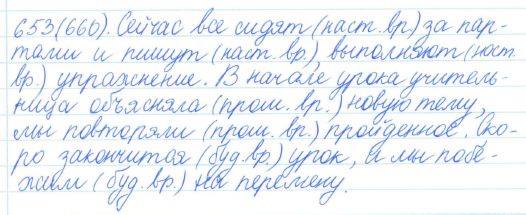 653(660). Сейчас все сидят (наст. вр.) за пар-
тами и пишут (наст. вр.), выполняют (наст.
вр.) упражнение. В начале урока учитель-
ница объясняла (прош. вр.) новую тему,
мы повторяли (прош. вр.) пройденное. Ско-
ро закончится (буд. вр.) урок, и мы побе-
жим (буд. вр.) на перемену.